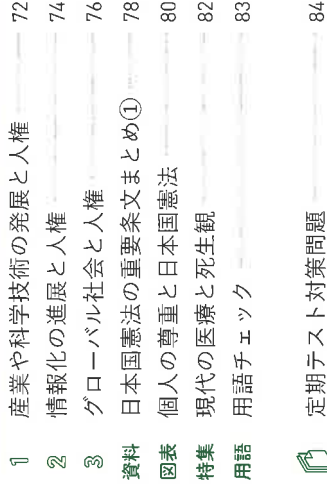 1 産業や科学技術の発展と人権 72
2 情報化の進展と人権 74
3 グローバル社会と人権 76
資料 日本国憲法の重要条文まとめ① 78
図表 個人の尊重と日本国憲法 80
特集 現代の医療と死生観 82
用語 用語チェック 83
定期テスト対策問題 84